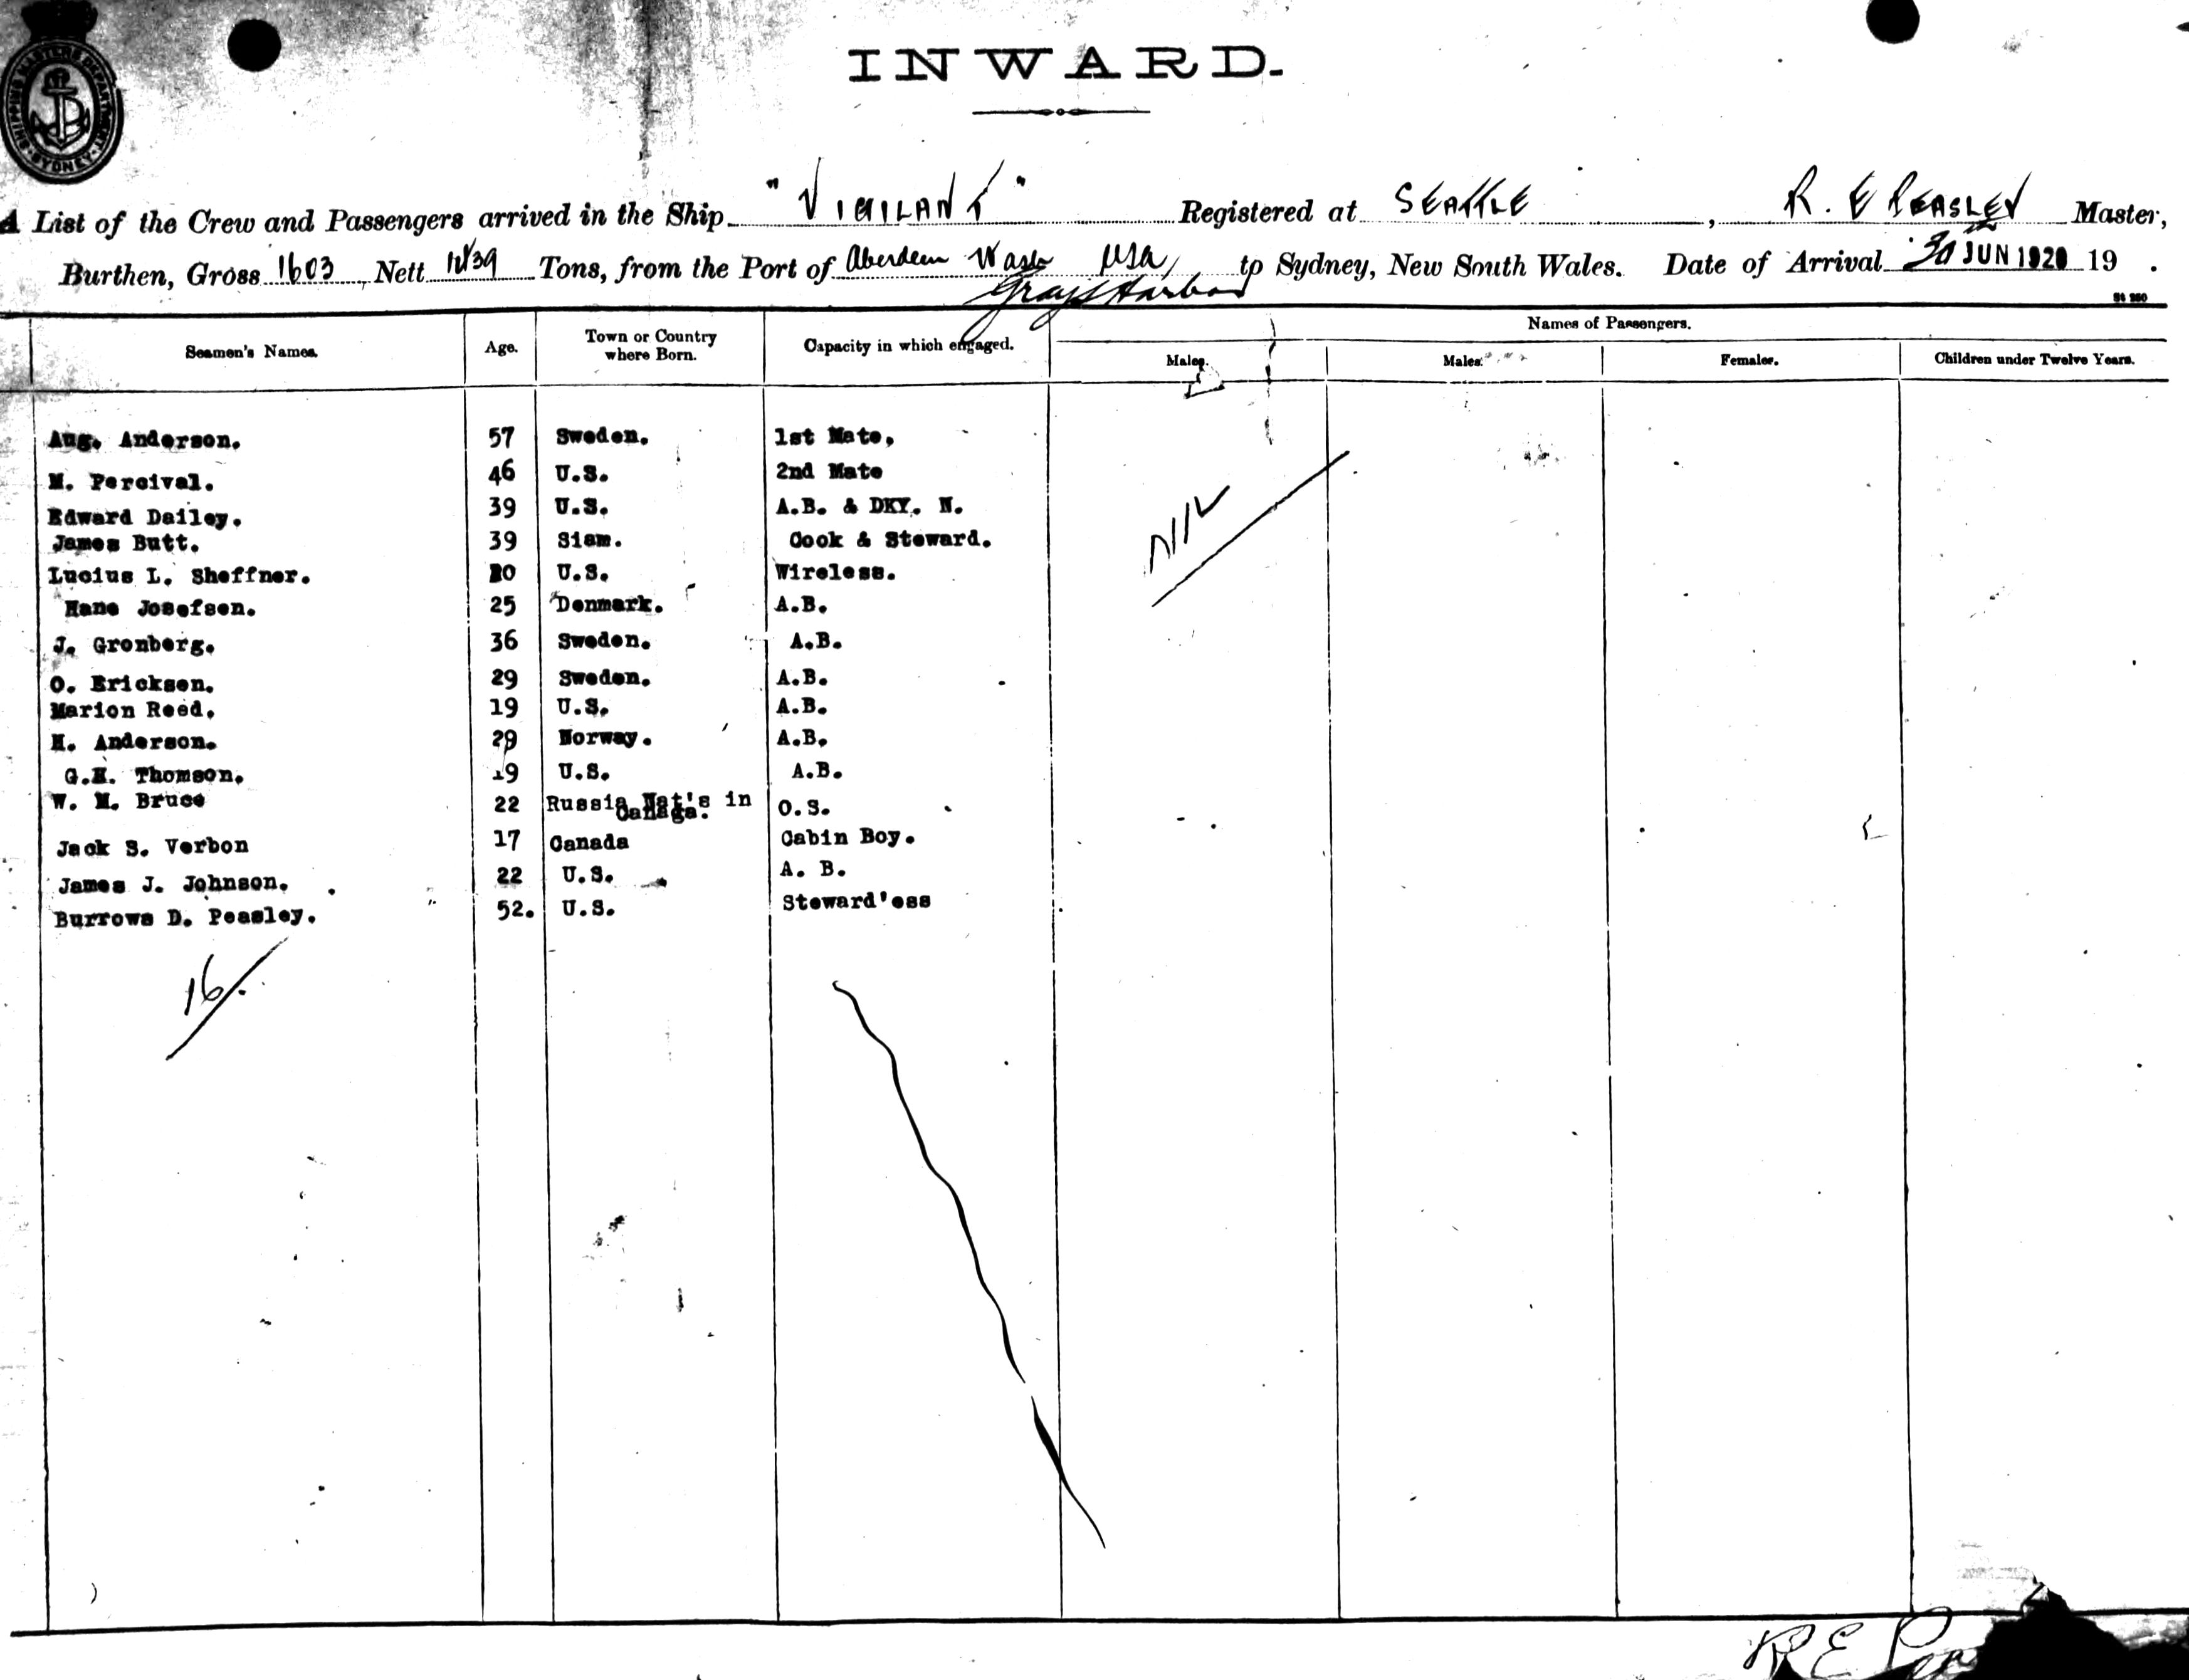 SHIPPING MASTERS DEPARTMENT
SYDNEY
INWARD.
A List of the Crew and Passengers arrived in the Ship "VIGILANT" Registered at SEATTLE, R. E PEASLEY Master,
Burthen, Gross 1603, Nett Tons, from the Port of Aberdeen Wash USA, to Sydney, New South Wales. Date of Arrival 30 JUN 1920 19 .
Grays Harbor
Names of Passengers.
Seamen's Names. Age. Town or Country where Born. Capacity in which engaged. Males. Males. Females. Children under Twelve Years.
Aug. Anderson. 57 Sweden. 1st Mate,
M. Percival. 46 U.S. 2nd Mate
Edward Dailey. 39 U.S. A.B. & DKY. N.
James Butt. 39 Siam. Cook & Steward.
NIL
Lucius L. Sheffner. 20 U.S. Wireless.
Hans Josefsen. 25 Denmark. A.B.
J. Gronberg. 36 Sweden. A.B.
O. Ericksen. 29 Sweden. A.B.
Marion Reed. 19 U.S. A.B.
H. Anderson. 29 Norway. A.B.
G.H. Thomson. 19 U.S. A.B.
W. M. Bruce 22 Russia Nat's in Canada. O.S.
Jack S. Verbon 17 Canada Cabin Boy.
James J. Johnson. 22 U.S. A. B.
Burrows D. Peasley. 52. U.S. Steward'ess
16/.
R E